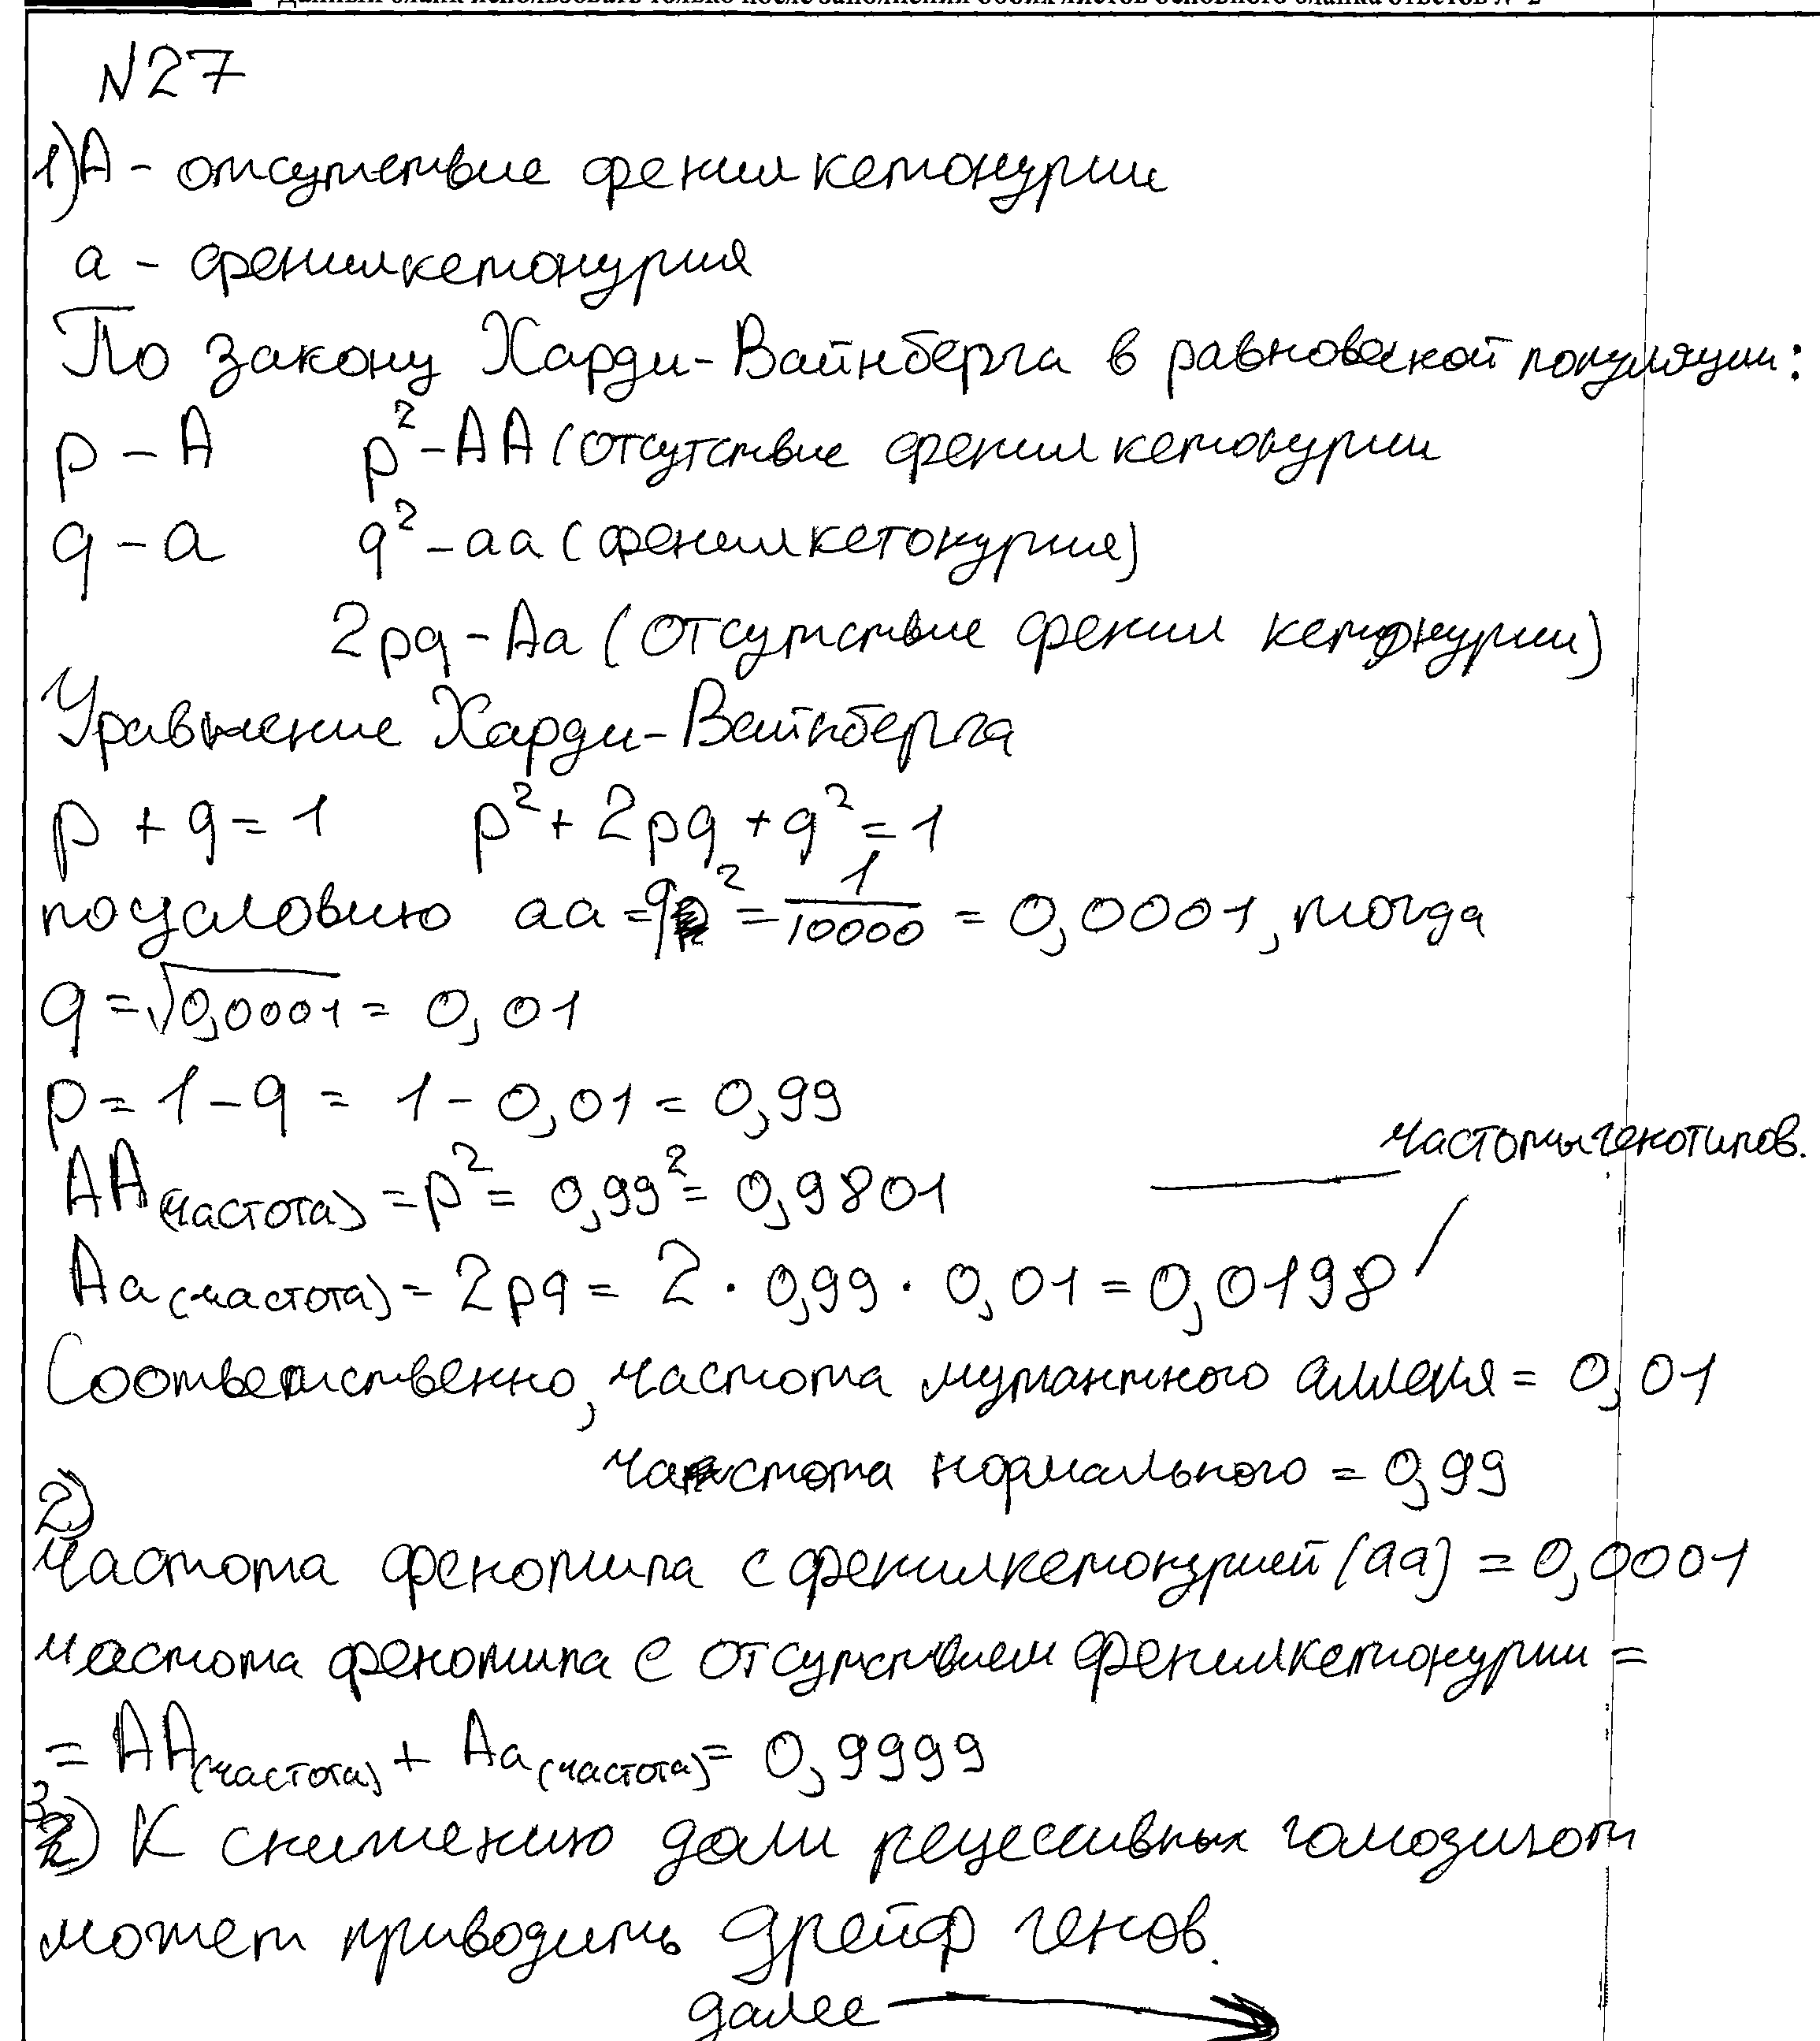 Данный бланк использовать только после заполнения обоих листов основного бланка ответов № 2
N27
1) А - отсутствие фенилкетонурии
а - фенилкетонурия
По закону Харди-Вайнберга в равновеской популяции:
p - A p² - AA (отсутствие фенилкетонурии
q - a q² - aa (фенилкетонурия)
2pq - Aa (отсутствие фенилкетонурии)
Уравнение Харди-Вайнберга
p + q = 1 p² + 2pq + q² = 1
по условию aa = q² = 1/10000 = 0,0001, тогда
q = √0,0001 = 0,01
p = 1 - q = 1 - 0,01 = 0,99
частоты генотипов.
AA(частота) = p² = 0,99² = 0,9801
Aa(частота) = 2pq = 2 · 0,99 · 0,01 = 0,0198
Соответственно, частота мутантного аллеля = 0,01
частота нормального = 0,99
2)
Частота фенотипа с фенилкетонурией (aa) = 0,0001
частота фенотипа с отсутствием фенилкетонурии =
= AA(частота) + Aa(частота) = 0,9999
3) К снижению доли рецессивных гомозигот
может приводить дрейф генов.
далее